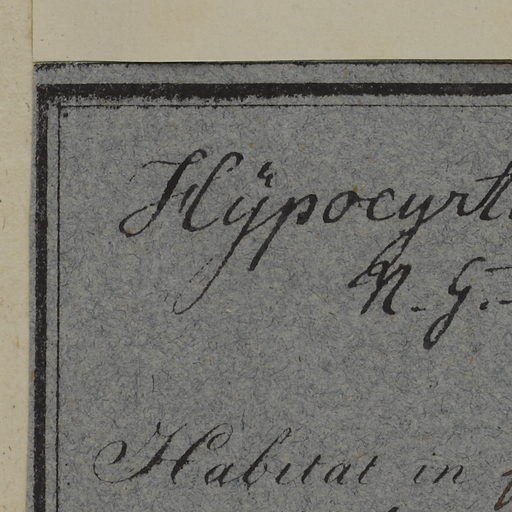 Hÿpocyrt
N. G.
Habitat in